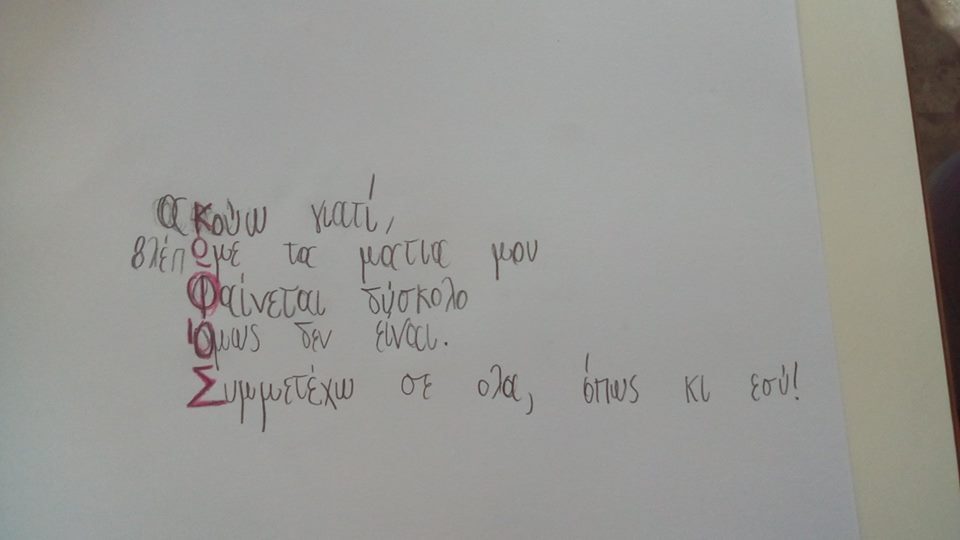 ακούω γιατί,
βλέπω με τα ματια μου
Φαίνεται δύσκολο
Όμως δεν είναι.
Συμμετέχω σε ολα, όπως κι εσύ!